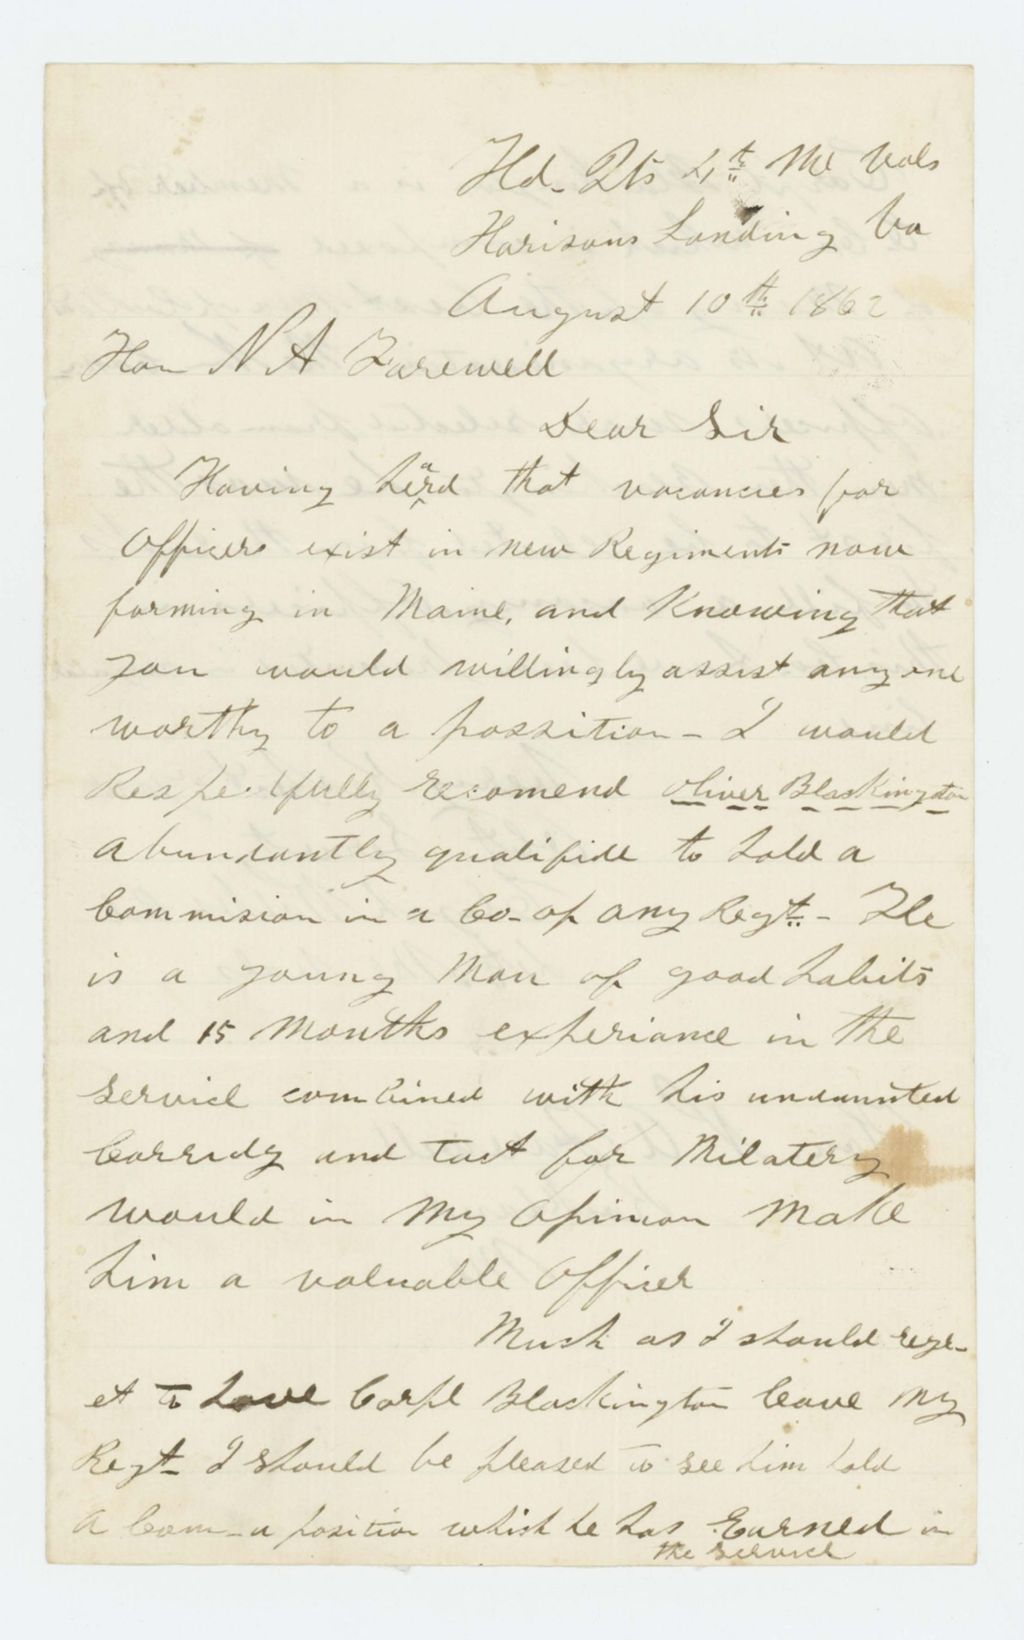 Hd. Qts 4th Me Vols
Harisons Landing Va
August 10th 1862
Hon N A Farewell
Dear Sir
Having heard that vacancies for
Officers exist in new Regiments now
forming in Maine, and Knowing that
you would willingly assist any one
worthy to a possition - I would
Respectfully recomend Oliver Blackington
abundantly qualifide to hold a
Commision in a Co - of any Regt. - He
is a young Man of good habits
and 15 Months experiance in the
Service combined with his undaunted
and tact for Milatery
would in My Opinion Make
him a valuable Officer
Much as I should regr-
et to have Corpl Blackington leave My
Regt - I should be pleased to see him hold
a Com - a position which he has Earned in
the Service